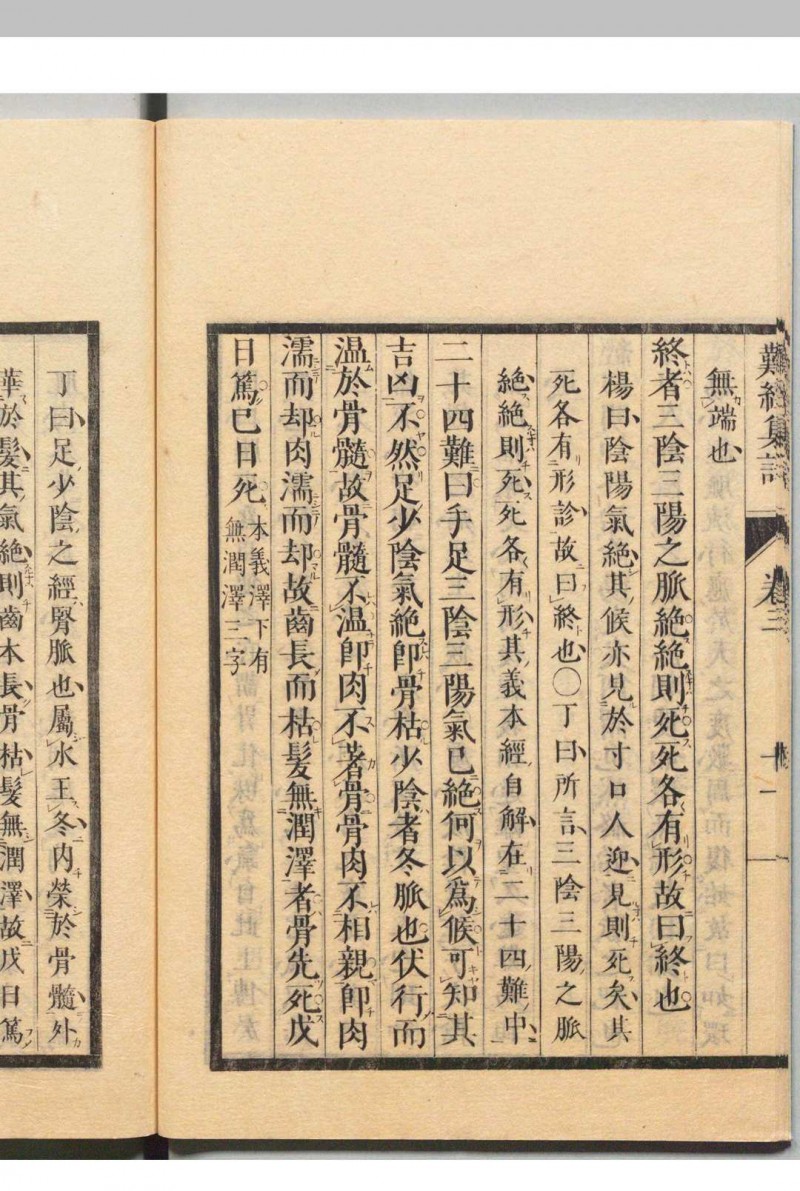 難經集註 卷三 十二
無端也
終者三陰三陽之脈絕絕則死死各有形故曰終也
楊曰陰陽氣絕其候亦見於寸口人迎見則死矣其
死各有形診故曰終也〇丁曰所言三陰三陽之脈
絕絕則死死各有形其義本經自解在二十四難中
二十四難曰手足三陰三陽氣已絕何以爲候可知其
吉凶不然足少陰氣絕卽骨枯少陰者冬脈也伏行而
温於骨髓故骨髓不温卽肉不著骨骨肉不相親卽肉
濡而却肉濡而却故齒長而枯髮無潤澤者骨先死戊
日篤己日死
本義澤下有
無潤澤三字
丁曰足少陰之經腎脈也屬水王冬内榮於骨髓外
華於髮其氣絕則齒本長骨枯髮無潤澤故戊日篤